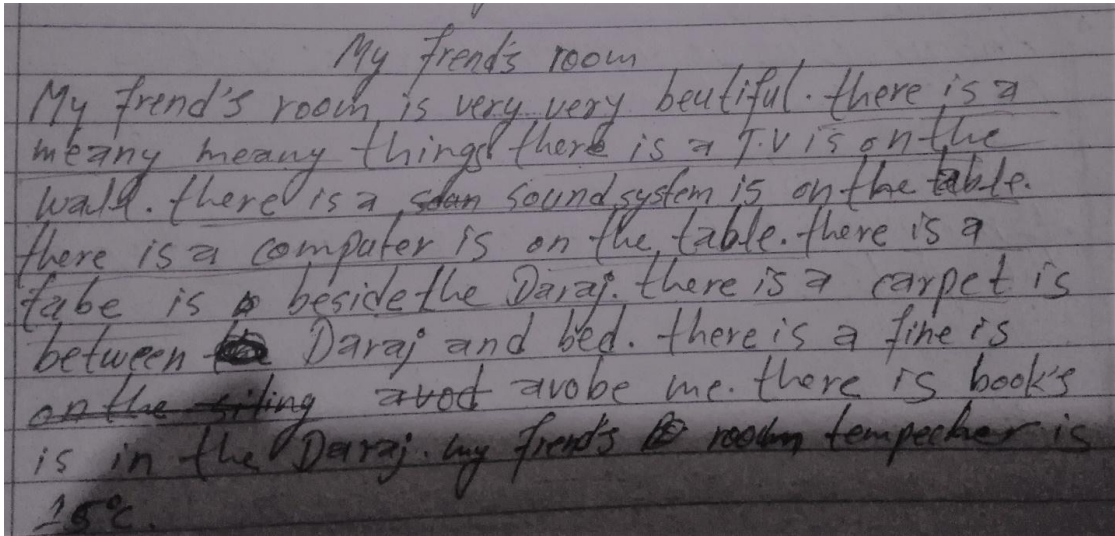 My frend's room
My frend's room is very very beutiful. there is a
meany meany things there is a T.V is on the
wall. there is a soun sound system is on the table.
there is a computer is on the table. there is a
tabe is beside the Daraj. there is a carpet is
between Daraj and bed. there is a fine is
on the siting avod avobe me. there is book's
is in the Daraj. my frend's room tempecher is
15°c.